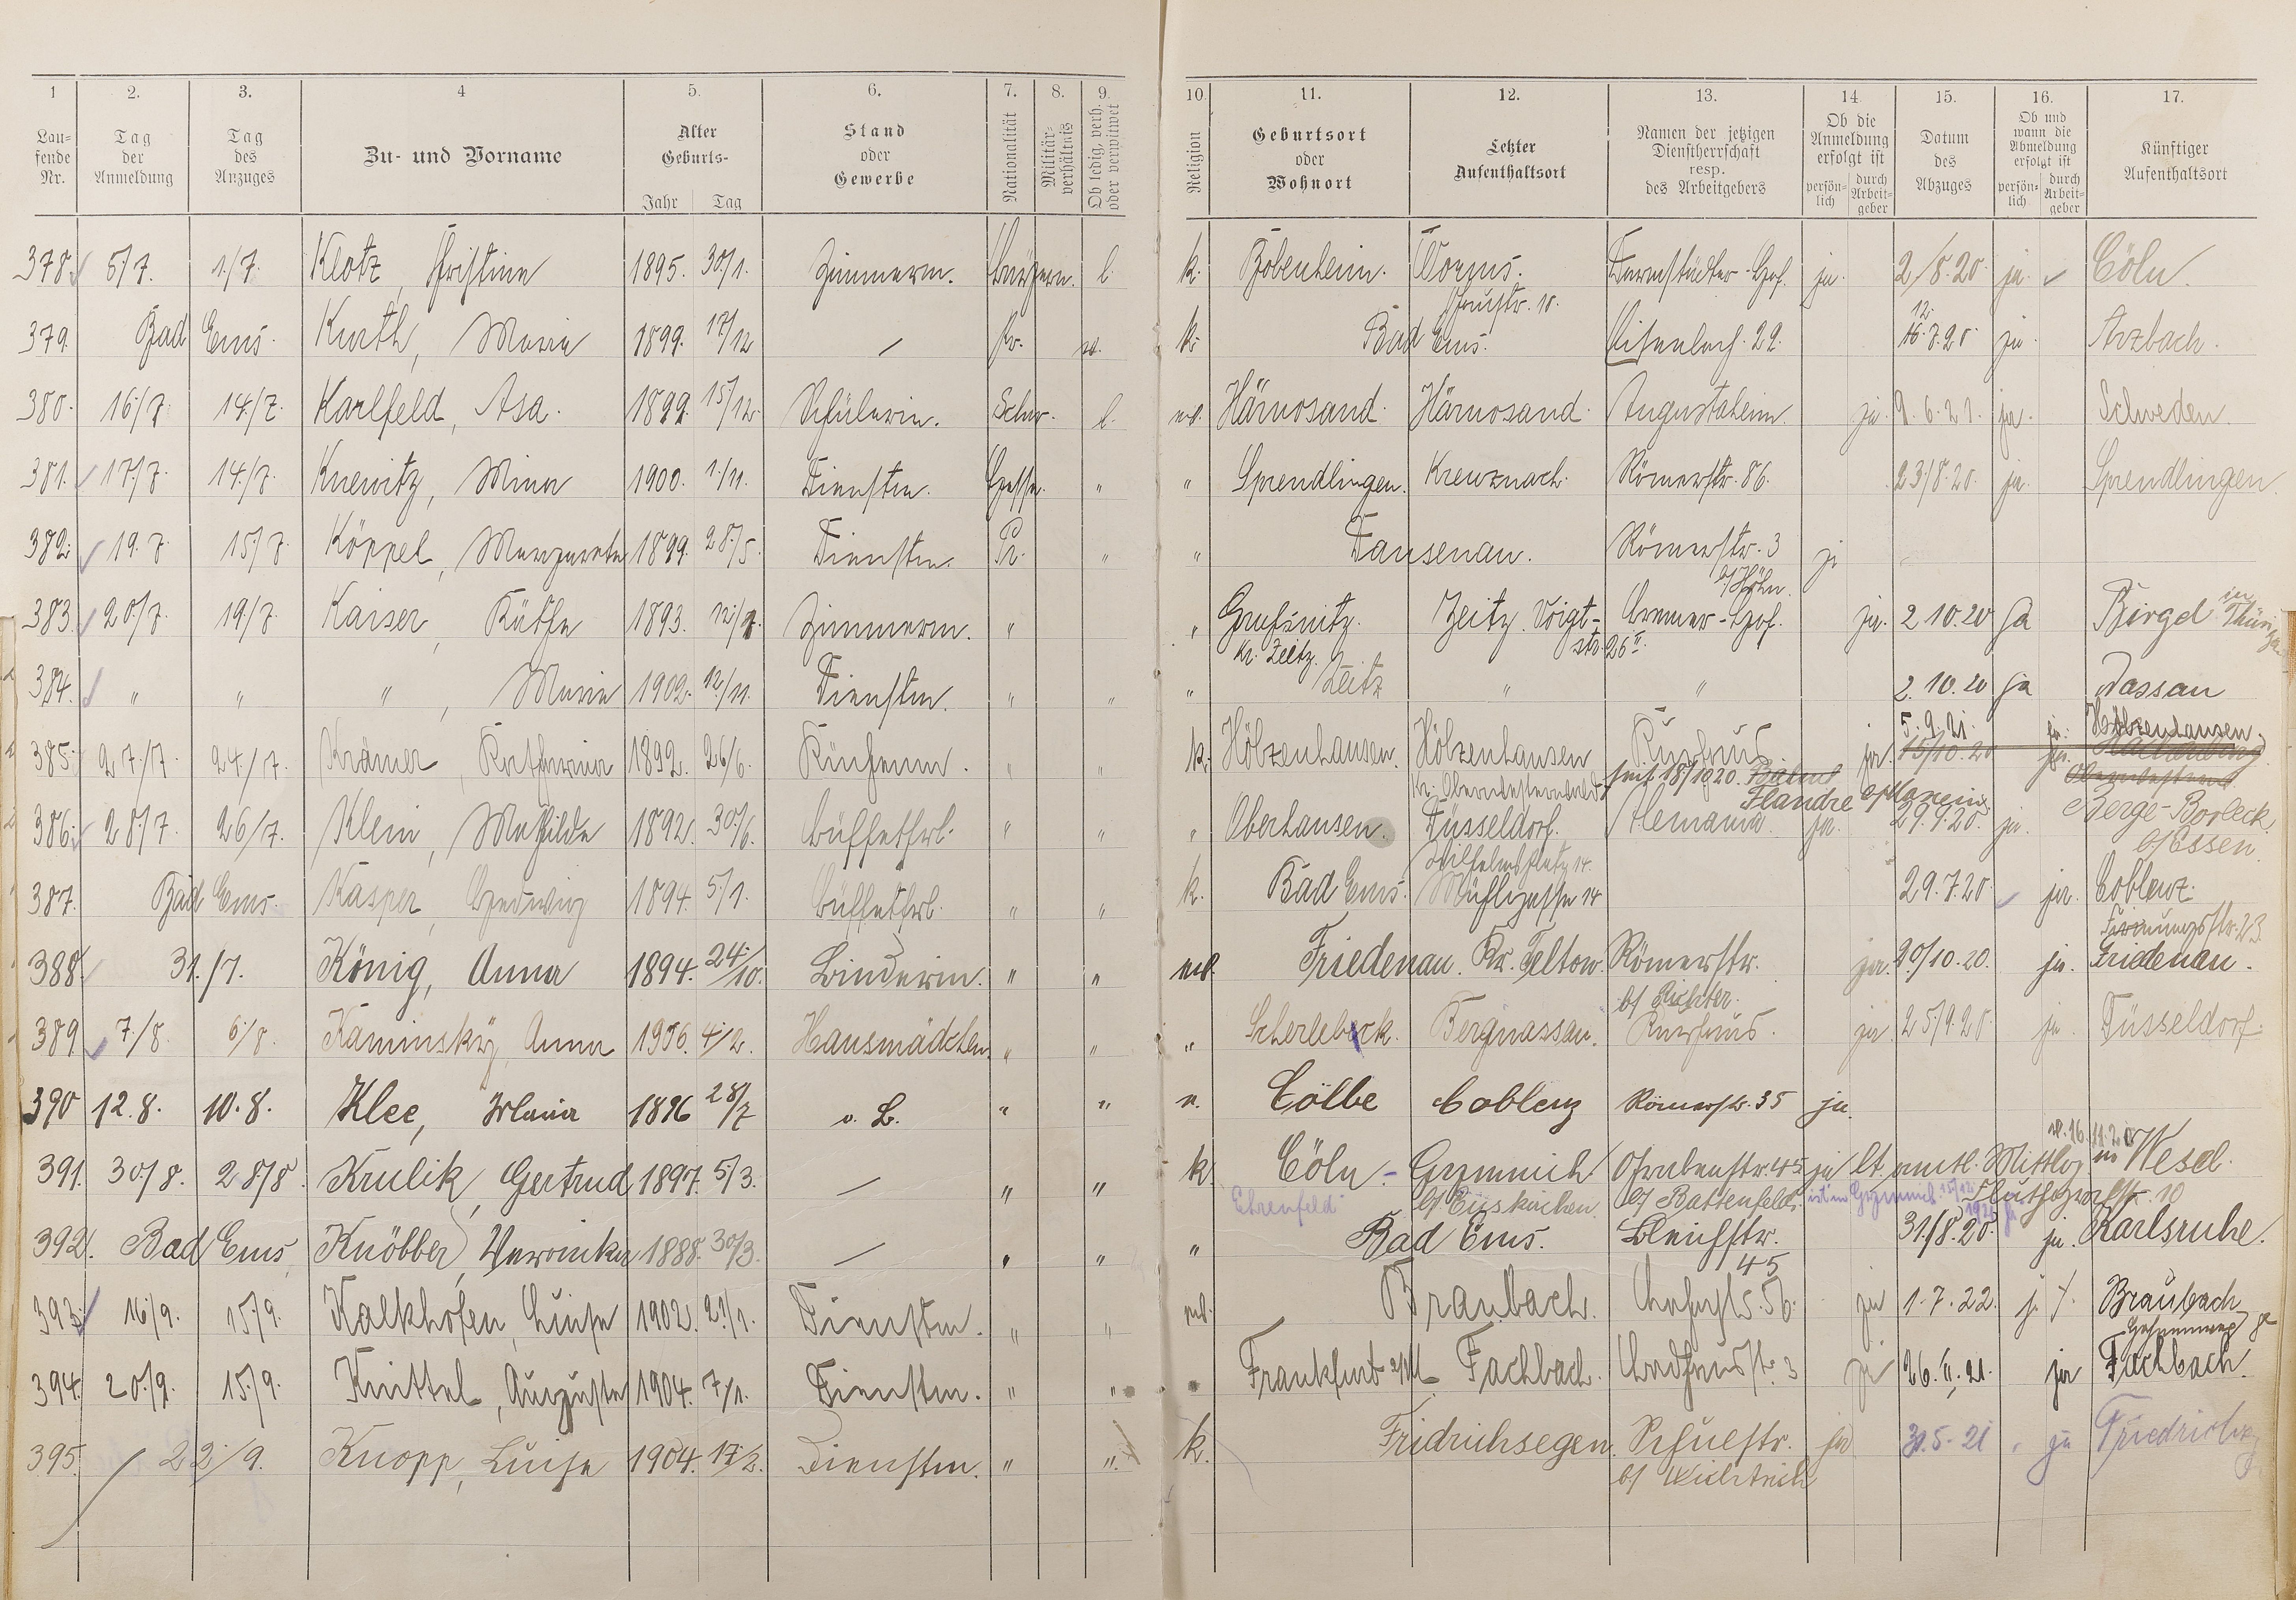 1 2. 3. 4 5. 6. 7. 8. 9. 10. 11. 12. 13. 14. 15. 16. 17.
Lau-
fende
Nr.
Tag
der
Anmeldung
Tag
des
Anzuges
Zu- und Vorname
Alter
Geburts-
Jahr Tag
Stand
oder
Gewerbe
Nationalität
Militär-
verhältnis
Ob ledig, verh.
oder verwitwet
Religion
Geburtsort
oder
Wohnort
Letzter
Aufenthaltsort
Namen der jetzigen
Dienstherrschaft
resp.
des Arbeitgebers
Ob die
Anmeldung
erfolgt ist
persön-
lich
durch
Arbeit-
geber
Datum
des
Abzuges
Ob und
wann die
Abmeldung
erfolgt ist
persön-
lich
durch
Arbeit-
geber
Künftiger
Aufenthaltsort
378. 5/7. 1./7. Klotz, Christine 1895. 30/1. Zimmerm. l. k. Bobenheim. Worms. Darmstädter-Hof. ja. 2/8.20 ja. Cöln.
379. Bad Ems. Kurth, Maria 1899. 17/12 Pr. k. Bad Ems. 12.
16.7.20 ja. Arzbach.
380. 16/7. 14./7. Karlfeld, Asa. 1899. 15/12. Schülerin. Schw. l. Härnosand. Härnosand. Augustaheim. ja. 9.6.21. ja. Schweden.
381. 17./7. 14./7. Knewitz, Mina 1900. 1./11. Dienstm. Hesse. " " Sprendlingen. Kreuznach. Römerstr. 86. 23/8.20. ja. Sprendlingen.
382. 19.7. 15./7. Köppel, Margarete 1899. 28./5. Dienstm. Pr. " " Dausenau. Römerstr. 3 ja
b/Höhn.
383. 20./7. 19/7. Kaiser, Käthe 1893. Zimmerm. " " Zeitz. Voigt- Bremer-Hof. ja. 2.10.20 ja Bürgel in
Kr. Zeitz. str. 26 II.
384. " " ", Maria 1902. 12/11. Dienstm. " " " Zeitz " " 2.10.20 ja Nassau
385. 27./7. 24./7. Krämer, Katharina 1892. 26/6. " " k. Hölzenhausen. Hölzenhausen Kurhaus ja. 5.9.21. ja. Hölzenhausen.
15/10.20 ja.
Kr. Oberwesterwald seit 18/10.20.
386. 28./7. 26./7. Klein, Mathilde 1892. 30./6. Büffetfrl. " " " Oberhausen. Düsseldorf. Alemania ja. 29.9.20. ja. Berge-Borbeck.
b/Essen.
387. Bad Ems. Kasper, Hedwig 1894. 5/1. Büffetfrl. " " k. Bad Ems. Mühlgasse 14 29.7.20. ja. Coblenz.
388. 31./7. König, Anna 1894. 24./10. Binderin. " " Friedenau. Kr. Teltow. Römerstr. ja. 20/10.20. ja. Friedenau.
b/ Richter.
389. 7./8. 6/8. Kaminsky, Anna 4/2. Hausmädchen " " " Scherlebeck. Bergnassau. Kurhaus. ja. 25/9.20. ja. Düsseldorf.
390 12.8. 10.8. Klee, Maria 1896 28/7 o. B. " " Cölbe Coblenz Römerstr. 35 ja.
391. 30/8. 28/8. Krulik, Gertrud 1897. 5/3. " " k Cöln - Gymnich Grabenstr. 45 ja lt. amtl. Wesel.
Ehrenfeld b/ Euskirchen. b/ Battenfeld.
392. Bad Ems, Knöbber, Veronika 1888. 30/3. " " " Bad Ems. Bleichstr. 31./8.20. ja. Karlsruhe.
45
393. 16/9. 15/9. Kalkhofen, Luise 1902. 21/1. Dienstm. " " Braubach. ja 1.7.22. Braubach
394. 20./9. 15./9. Knittel, Auguste 1904. 7/1. Dienstm. " " Frankfurt a/M Fachbach. ja 26.II.21. ja Fachbach.
395. 22/9. Knopp, Luise 1904. 17/2. Dienstm. " " k. Fridrichsegen. Schulstr. ja 30.5.21 ja